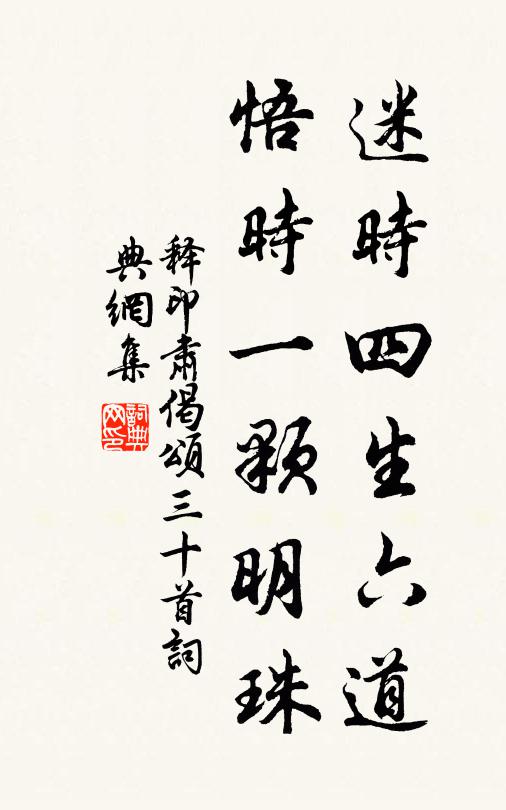 迷時四生六道
悟時一顆明珠
释印肃偈頌三十首詞
典網集
詞典
网印